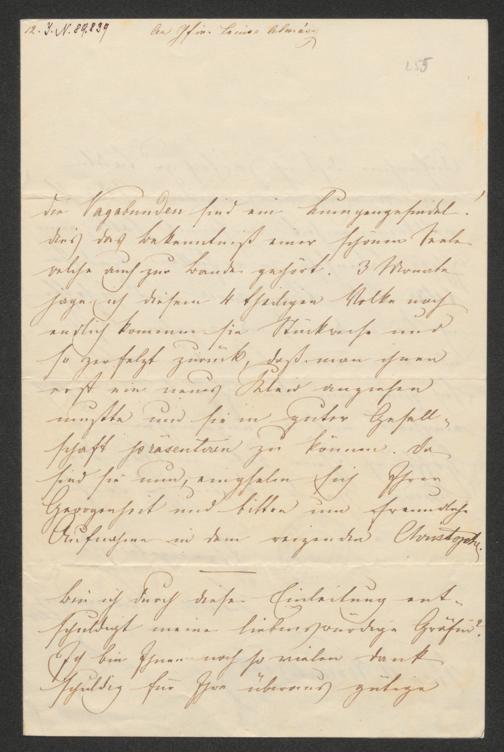 12. J. N. 89,839
An Gfin. Almásy
255
die Vagabunden sind ein Lumpengesindel!
dies das Bekenntniß einer schönen Seele
welche auch zur Bande gehört. 3 Monate
jage ich diesem 4 theiligen Volke nach
endlich kommen sie Stückweise und
so zerfetzt zurück, daß man ihnen
erst ein neues Kleid anziehen
mußte um sie in guter Gesell-
schaft präsentiren zu können. Da
sind sie nun, empfehlen sich Ihrer
Gewogenheit und bitten um freundliche
Aufnahme in dem reizenden
Bin ich durch diese Einleitung ent-
schuldigt meine liebenswürdige Gräfin?
Ich bin Ihnen noch so vielen Dank
schuldig für Ihre überaus gütige